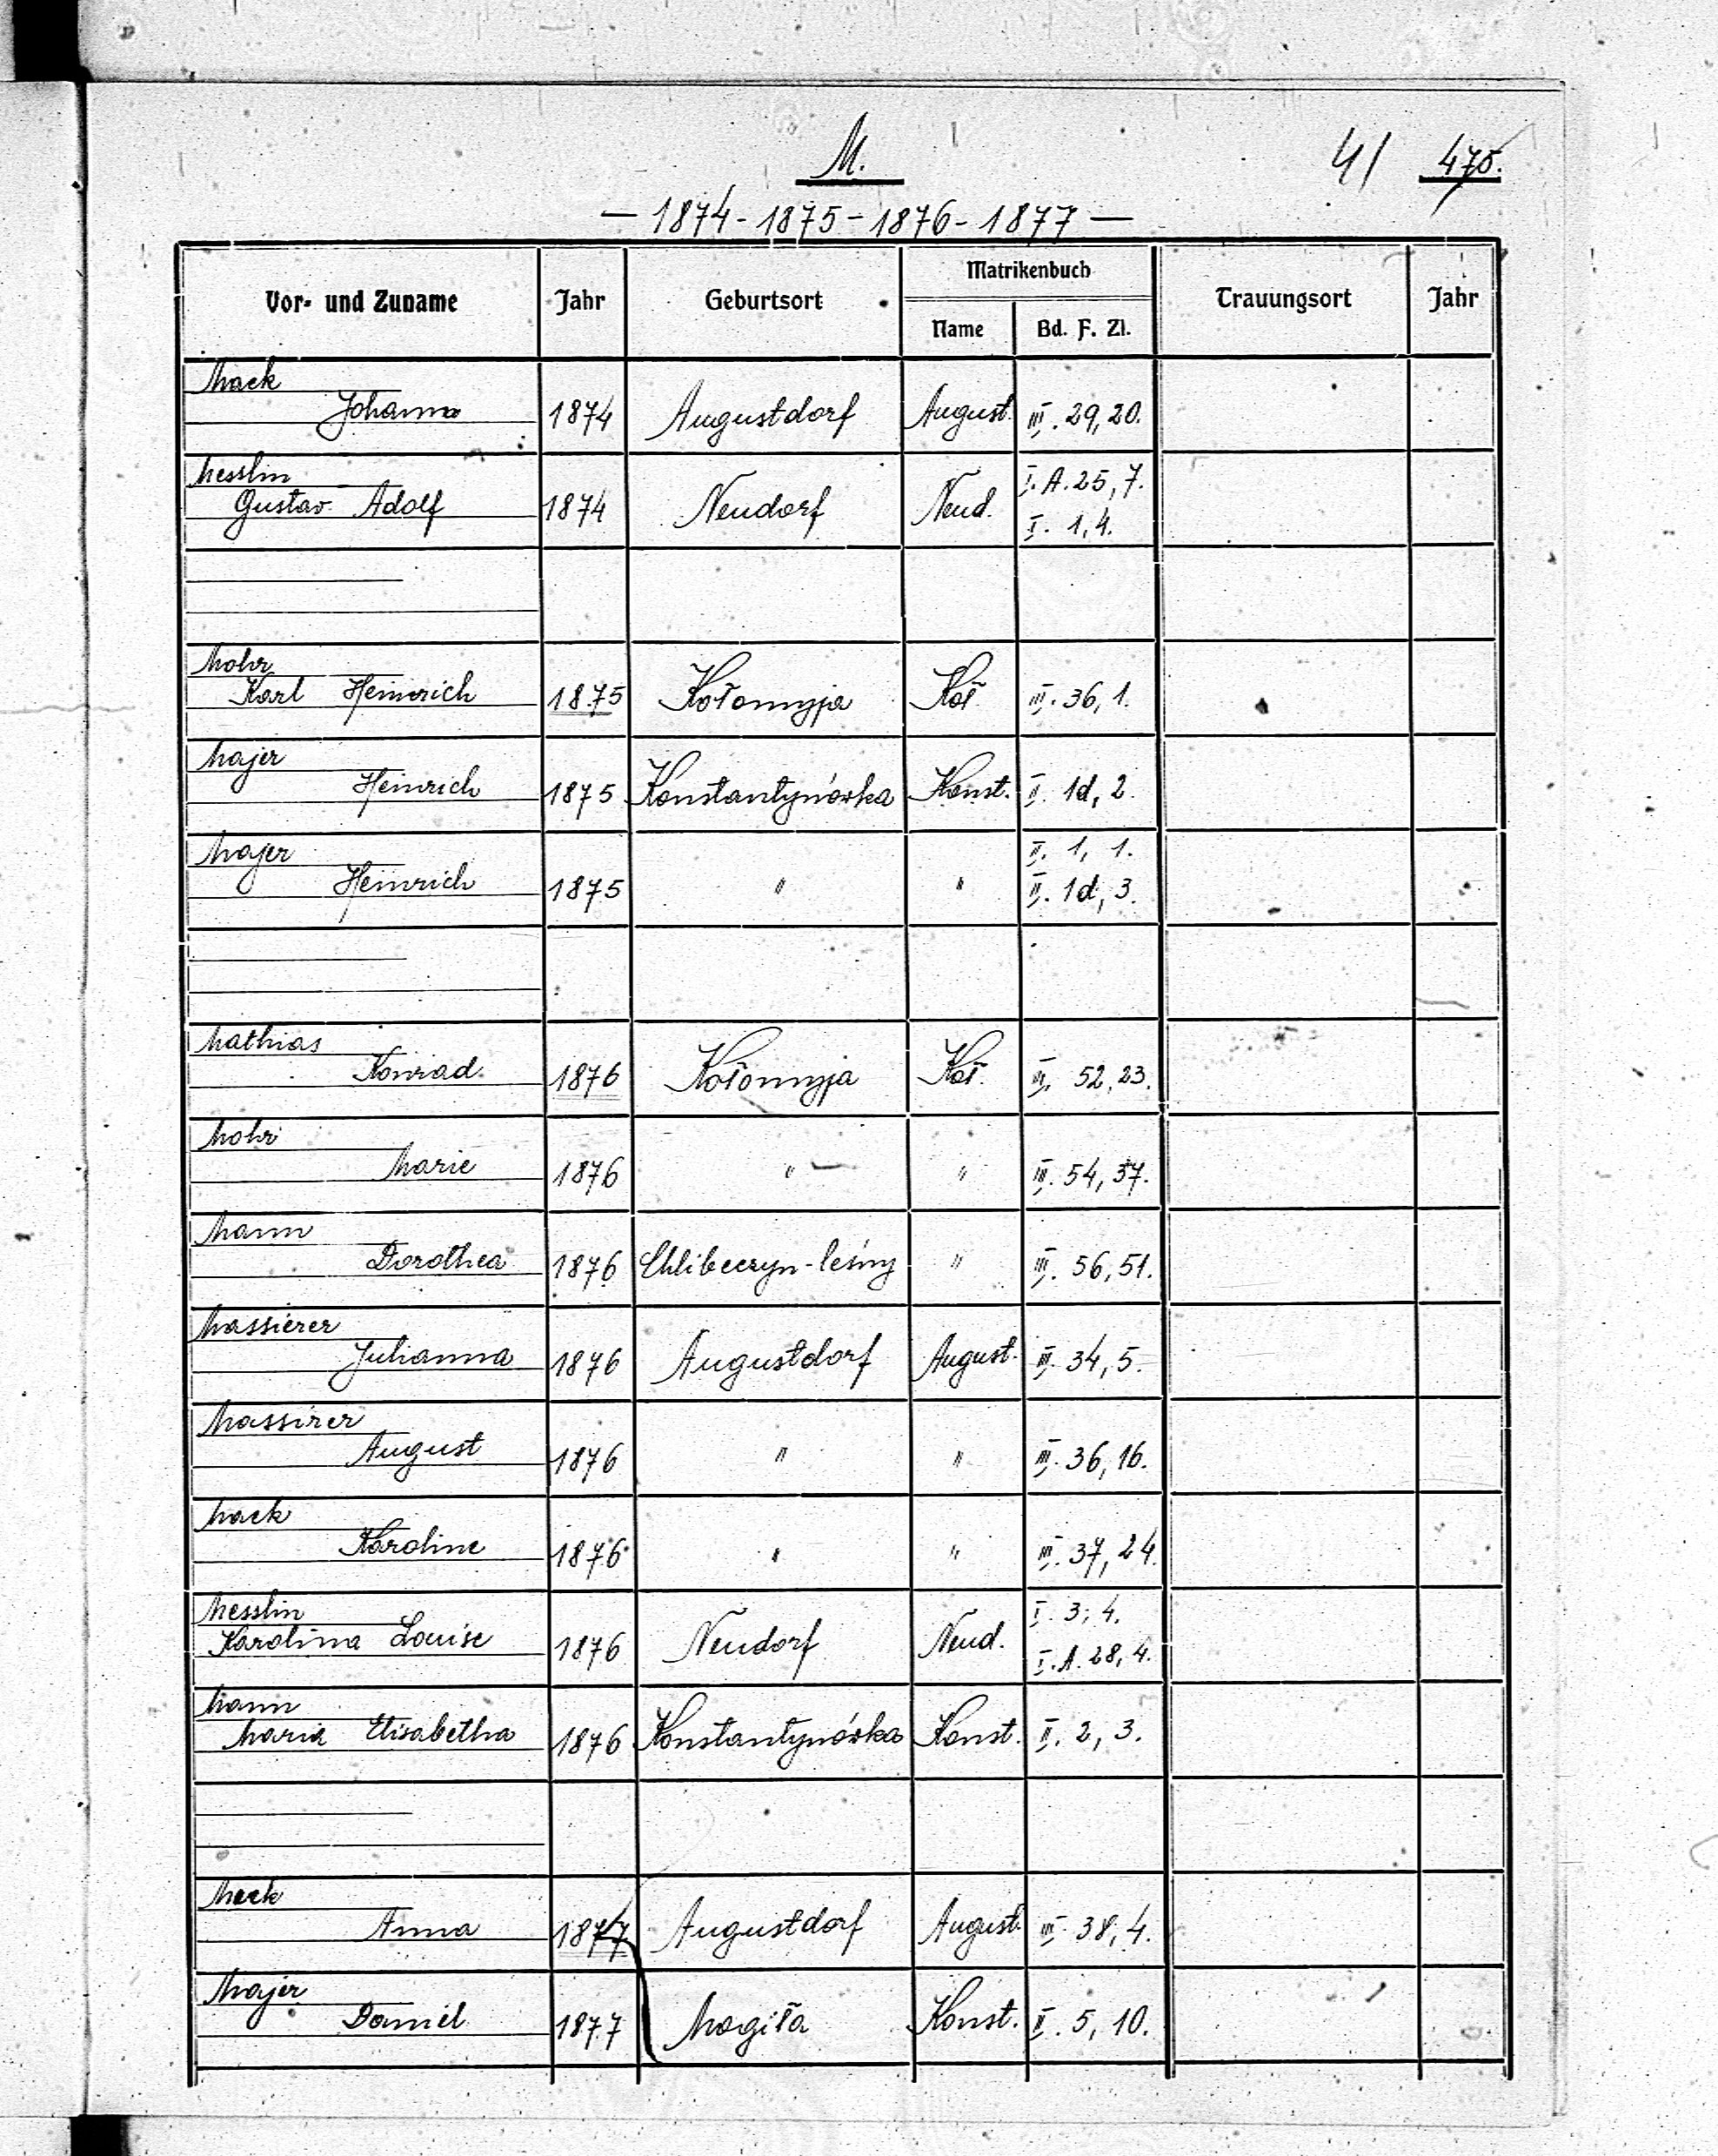 M.
41 475.
— 1874 - 1875 - 1876 - 1877 —
Vor- und Zuname Jahr Geburtsort Matrikenbuch Trauungsort Jahr
Name Bd. F. Zl.
Mack
Johanna 1874 Augustdorf August. III. 29, 20.
Messlin I. A. 25, 7.
Gustav Adolf 1874 Neudorf Neud. I. 1, 4.
Mohr
Karl Heinrich 1875 Kołomyja Koł. III. 36, 1.
Majer
Heinrich 1875 Konstantynówka Konst. II. 1d, 2.
Majer II. 1, 1.
Heinrich 1875 " " II. 1d, 3.
Mathias
Konrad 1876 Kołomyja Koł. III. 52, 23.
Mohr
Marie 1876 " " III. 54, 37.
Mann
Dorothea 1876 Chlibeczyn-leśny " III. 56, 51.
Massierer
Julianna 1876 Augustdorf August. III. 34, 5.
Massirer
August 1876 " " III. 36, 16.
Mack
Karoline 1876 " " III. 37, 24.
Messlin I. 3, 4.
Karolina Louise 1876 Neudorf Neud. I. A. 28, 4.
Mann
Maria Elisabetha 1876 Konstantynówka Konst. II. 2, 3.
Meck
Anna 1877 Augustdorf August. III. 38, 4.
Majer
Daniel 1877 Mogiła Konst. II. 5, 10.